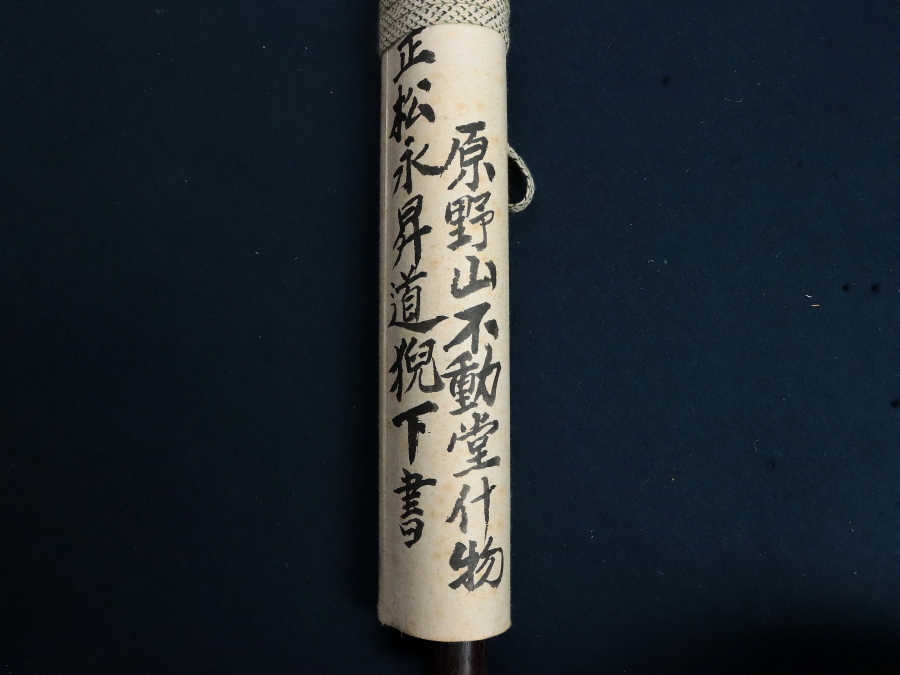 原野山不動堂什物
正松永昇道猊下書